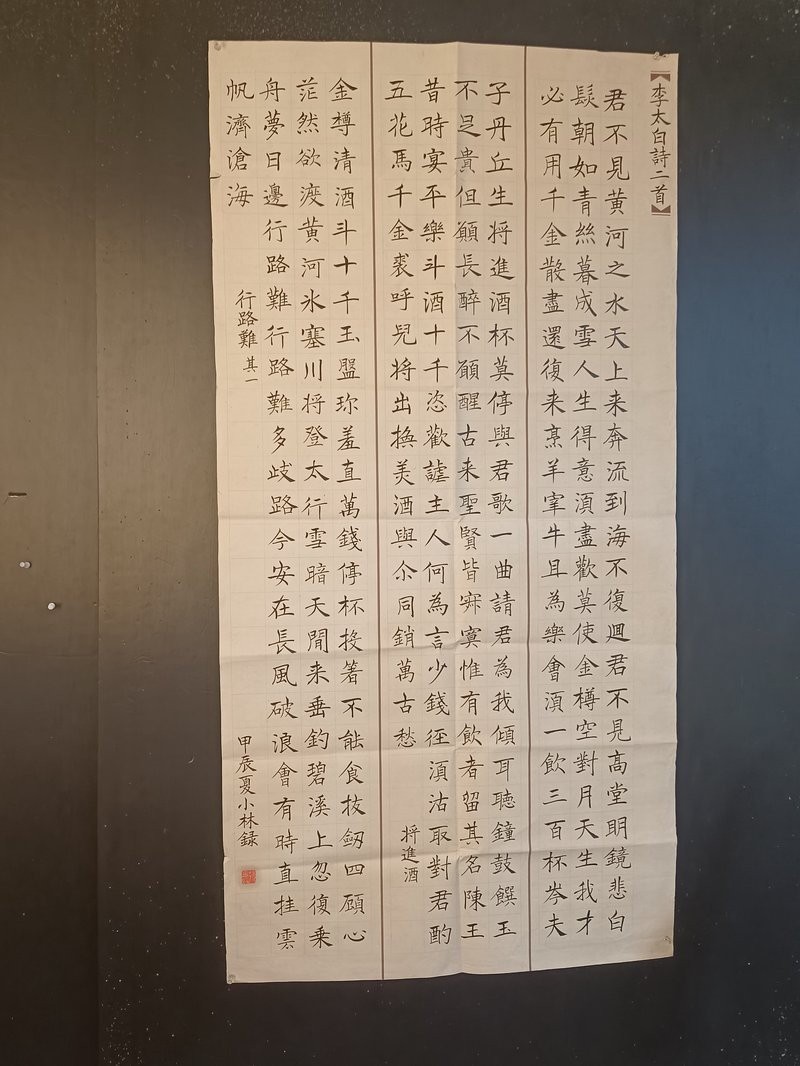 【李太白詩二首】
君不見黃河之水天上来奔流到海不復迴君不見高堂明鏡悲白
髮朝如青絲暮成雪人生得意須盡歡莫使金樽空對月天生我才
必有用千金散盡還復来烹羊宰牛且為樂會須一飲三百杯岑夫
子丹丘生将進酒杯莫停與君歌一曲請君為我傾耳聽鐘鼓饌玉
不足貴但願長醉不願醒古来聖賢皆寂寞惟有飲者留其名陳王
昔時宴平樂斗酒十千恣歡謔主人何為言少錢徑須沽取對君酌
五花馬千金裘呼兒将出換美酒與尒同銷萬古愁
将進酒
金樽清酒斗十千玉盤珎羞直萬錢停杯投箸不能食拔劒四顧心
茫然欲渡黃河氷塞川将登太行雪暗天閒来垂釣碧溪上忽復乗
舟夢日邊行路難行路難多歧路今安在長風破浪會有時直挂雲
帆濟滄海
行路難 其一
甲辰夏小林録